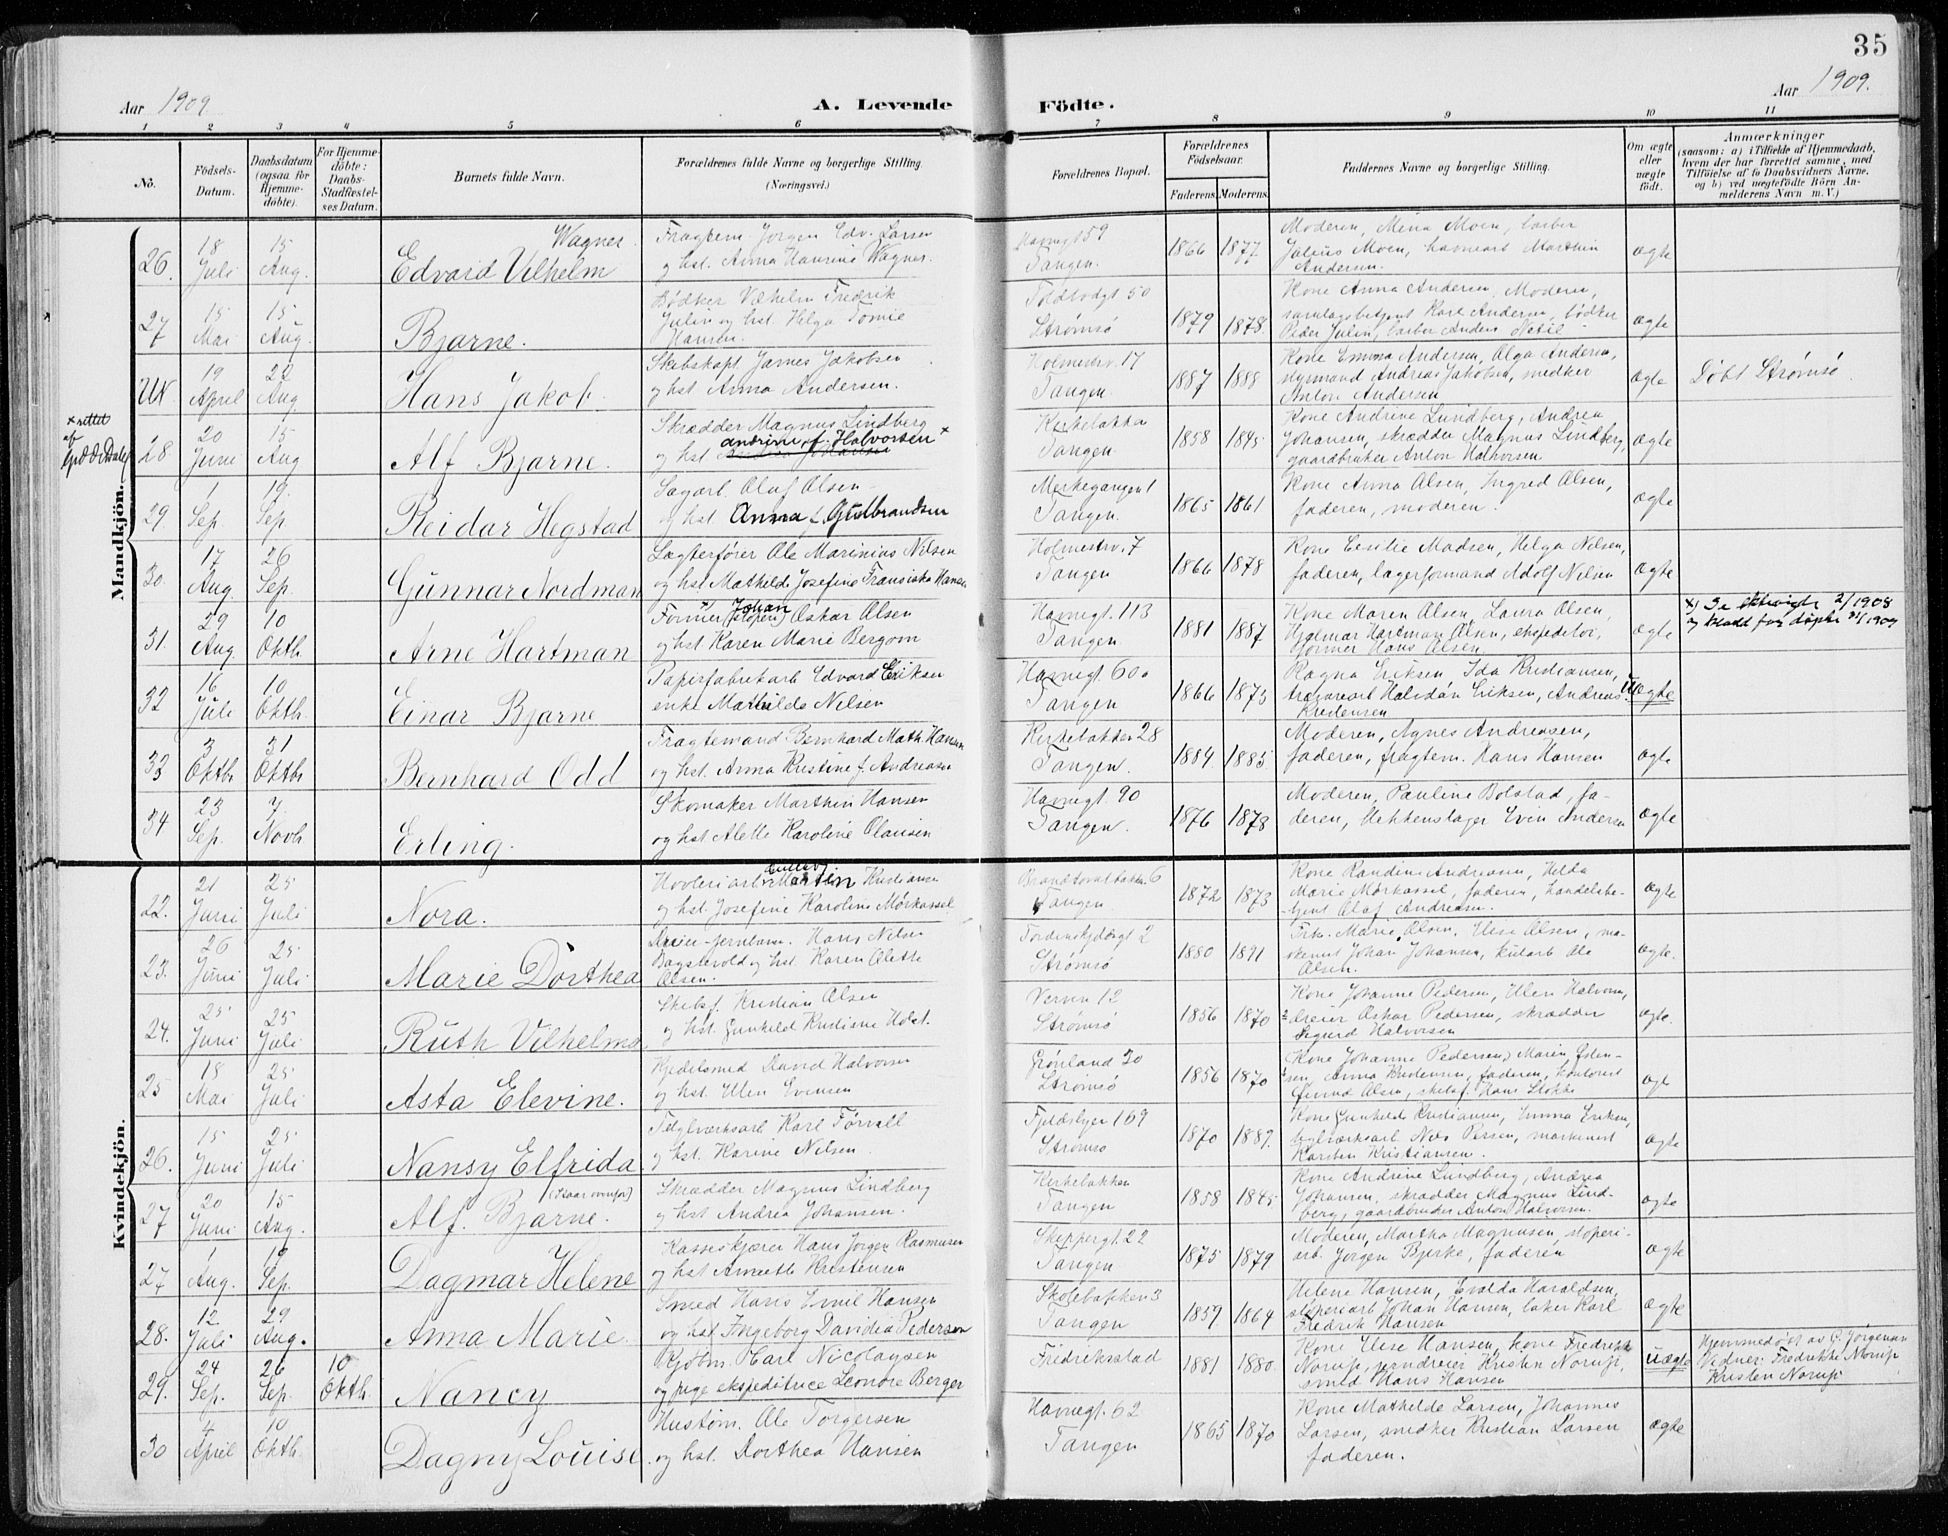 35
Aar 1909.
A. Levende
Födte.
Aar 1909.
1 2 3 4 5 6 7 8 9 10 11
No.
Födsels-
Datum.
Daabsdatum
(ogsaa for
Hjemme-
döbte).
For Hjemme-
döbte:
Daabs-
Stadfæstel-
ses Datum.
Barnets fulde Navn.
Forældrenes fulde Navne og borgerlige Stilling.
(Næringsvei.)
Forældrenes Bopæl.
Forældrenes
Födselsaar.
Faderens. Moderens.
Faddernes Navne og borgerlige Stilling.
Om ægte
eller
uægte
födt.
Anmærkninger
(saasom: a) i Tilfælde af Hjemmedaab,
hvem der har forrettet samme, med
Tilföielse af to Daabsvidners Navne.
og b) ved uægtefödte Börn An-
melderens Navn m. V.)
Mandkjön.
26. 18 Juli 15 Aug. Edvard Vilhelm Wagner.
Fragtem. Jørgen Edv. Larsen
og hst. Anna Wagner.
Havnegt 59
Tangen.
1866 1877
Moderen, Mina Moen, barber
Julius Moen, havnearb Marthin
Andersen.
ægte
27 15 Mai 15 Aug. Bjarne.
Bødker Vilhelm Fredrik
Julin og hst. Helga Tomie
Hansen.
Toldbodgt 50
Strømsø
1879 1878.
Kone Anna Andersen, Moderen,
Karl Andersen, bødker
Peder Julin, barber Anders
ægte
19 April 22 Aug Hans Jakob.
Skibskapt. James Jakobsen
og hst Anna Andersen.
17
Tangen.
1887 1888
Kone Emma Andersen, Olga Andersen,
styrmand Andreas Jakobsen, snedker
Anton Andersen
ægte
Døbt Strømsø.
x rettet
af
28. 20 Juni 15 Aug Alf Bjarne.
Skrædder Magnus Lindberg
Andrine f. Halvorsen x
og hst Andrea Johansen
Kirkebakken
Tangen.
1858 1845
Kone Andrine Lundberg, Andrea
Johansen, skrædder Magnus Lindberg,
gaardbruker Anton Halvorsen
ægte
29 1 Sep. 19. Sep. Reidar Hegstad
Sagarb. Olaf Olsen
og hst. Anna f. Gulbrandsen
Merkegangen 1
Tangen.
1865 1861
Kone Anna Olsen, Ingrid Olsen,
faderen, moderen.
ægte
30. 17 Aug 26 Sep. Gunnar Nordman
Lægterfører Ole Marinius Nilsen
og hst. Mathilde Josefine Fransiska Hansen
Holmestrv. 7
Tangen
1866 1878
Kone Cesilie Madsen, Helga Nilsen,
faderen, lagerformand Adolf Nilsen
ægte
31. 29 Aug. 10 Oktb. Arne Hartman
Johan
Former (støperi) Oskar Olsen
og hst Karen Marie Bergom
Havnegt. 113
Tangen
1881 1887
Kone Maren Olsen, Laura Olsen,
Hjalmar Hartman Olsen, ekspeditør,
former Hans Olsen
ægte
x) Se 2/1908
1909
32 16 Juli 10 Oktb. Einar Bjarne
Papirfabrikarb Edvard Eriksen
enke Mathilde Nilsen
Havnegt. 60a
Tangen
1866 1873
Ragna Eriksen, Ida Kristiansen,
Halvdan Eriksen, Andreas
Kristensen
uægte
33 3 Oktb 31 Oktb Bernhard Odd
Fragtemand Bernhard Math. Hansen
og hst. Anna Kristine f. Andreasen
Kirkebakken 28
Tangen.
1884 1885
Moderen, Agnes Andreasen,
faderen, fragtem. Hans Hansen
ægte
34 23 Sep. 7 Novb Erling.
Skomaker Marthin Hansen
og hst Alette Karoline Olausen
Havnegt. 90
Tangen.
1876 1878
Moderen, Pauline Bolstad, fa-
deren, blikkenslager Even Andersen
ægte
Kvindekjön.
22. 21 Juni 25 Juli Nora.
Høvleriarb. Martin Kristiansen
og hst. Josefine Karoline Mørkassel
6
Tangen
1872 1873
Kone Randine Andreasen, Hilda
Marie Mørkassel, faderen, handelsbe-
tjent Olaf Andreasen.
ægte
23. 26 Juni 25 Juli Marie Dorthea
Dreier jernbane. Hans Nilsen
og hst Karen Alette
Olsen.
Tordenskjoldsgt 2
Strømsø
1880 1891
Frk. Marie Olsen, Else Olsen, ma-
skinist Johan Johansen, Ole
Olsen.
ægte.
24. 25 Juni 25 Juli Ruth Vilhelma
Skibsf. Kristian Olsen
og hst. Gunhild Kristine Holst.
Verven 12
Strømsø
1856 1870
Kone Johanne Pedersen, Ulen Halvorsen,
dreier Oskar Pedersen, skrædder
Sigurd Halvorsen
ægte.
25 18 Mai 25 Juli Asta Elevine.
Kjedelsmed David Halvorsen
og hst. Ulen Evensen
Grønland 30
Strømsø
1856 1870
Kone Johanne Pedersen, Maren
Anna Kristensen, faderen, kontorist
Olsen, skibsf. Hans Stokke
ægt
26. 15 Juni 25 Juli Nansy Elfrida.
Teglværksarb Karl
og hst. Karine Nilsen.
169
Strømsø
1870 1889.
Kone Gunhild Kristiansen, Emma Eriksen,
teglværksarb Nils Persen, maskinist
Karsten Kristiansen.
ægte
27 20 Juni 15 Aug. Alf. Bjarne.
Skrædder Magnus Lindberg
og hst Andrea Johansen.
Kirkebakken
Tangen
1858 1845
Kone Andrine Lundberg, Andrea
Johansen, skrædder Magnus Lind-
berg, gaardbruker Anton Halvorsen.
ægte
27 1 Aug. 19 Sep. Dagmar Helene
Kasseskjærer Hans Jørgen Rasmusen
og hst Annette Kristensen
Skippergt. 22
Tangen
1875 1879
Moderen, Martha Magnusen, støperi-
arb Jørgen Bjerke, faderen
ægte
28. 12 Juli 29 Aug. Anna Marie.
Smed Hans Emil Hansen
og hst Ingeborg Davidia Pedersen
Skolebakken 3
Tangen
1859 1864
Helene Hansen, Evalda Haraldsen,
støperiarb Johan Hansen, baker Karl
Fredrik Hansen
ægte
29. 24 Sep. 26 Sep. 10 Oktb. Nancy
Kjøbm. Carl Nicolaysen
og pige ekspeditrice Leonore Berger
Fredriksstad
1881 1880.
Kone Else Hansen, kone Fredrikke
Norup, jerndreier Kristen Norup,
smed Hans Hansen
uægte
Hjemmedøbt av C. Jørgensen
Vidner: Fredrikke Norup
Kristen Norup.
30 4 April 10 Oktb. Dagny Louise
Hustøm. Ole Torgersen
og hst. Dorthea Hansen
Havnegt. 62
Tangen
1865 1870
Kone Mathilde Larsen, Johannes
Larsen, snedker Kristian Larsen
faderen.
ægte